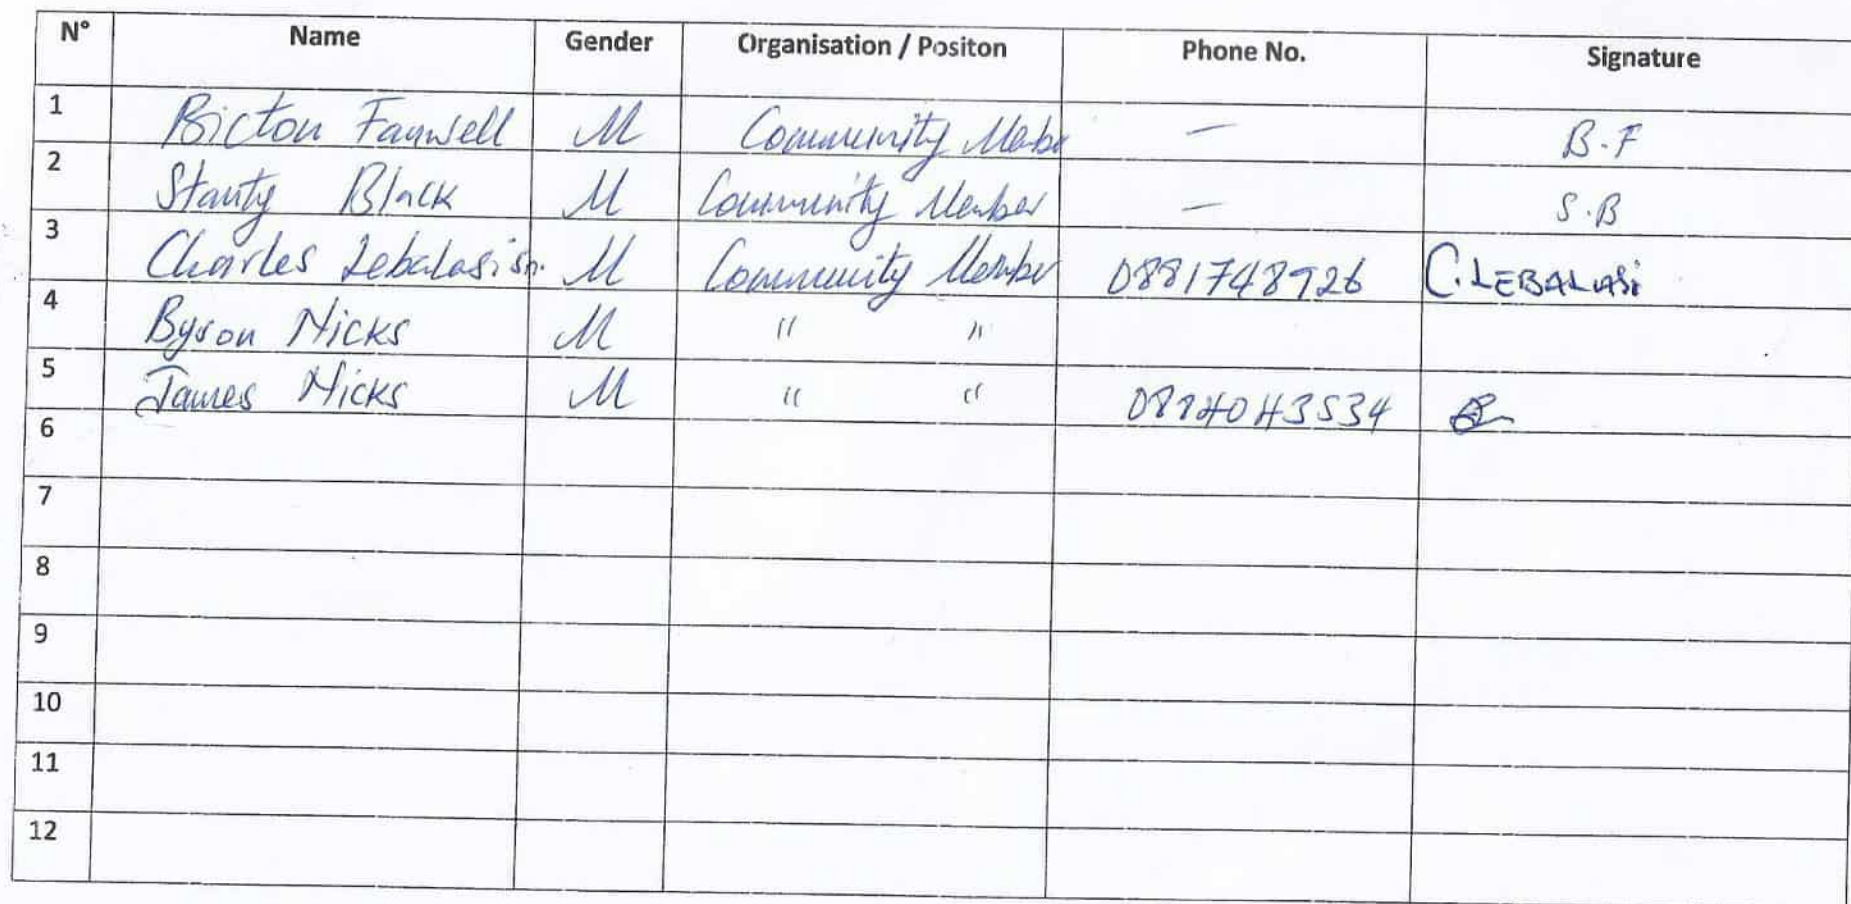 N° Name Gender Organisation / Positon Phone No. Signature
1 Bicton Faywell M Community Membe — B.F
2 Stanty Black M Community Member — S.B
3 Charles Lebalasi M Community Member 0881748926 C. LEBALASi
4 Byson Nicks M " "
5 James Nicks M " "
6
7
8
9
10
11
12